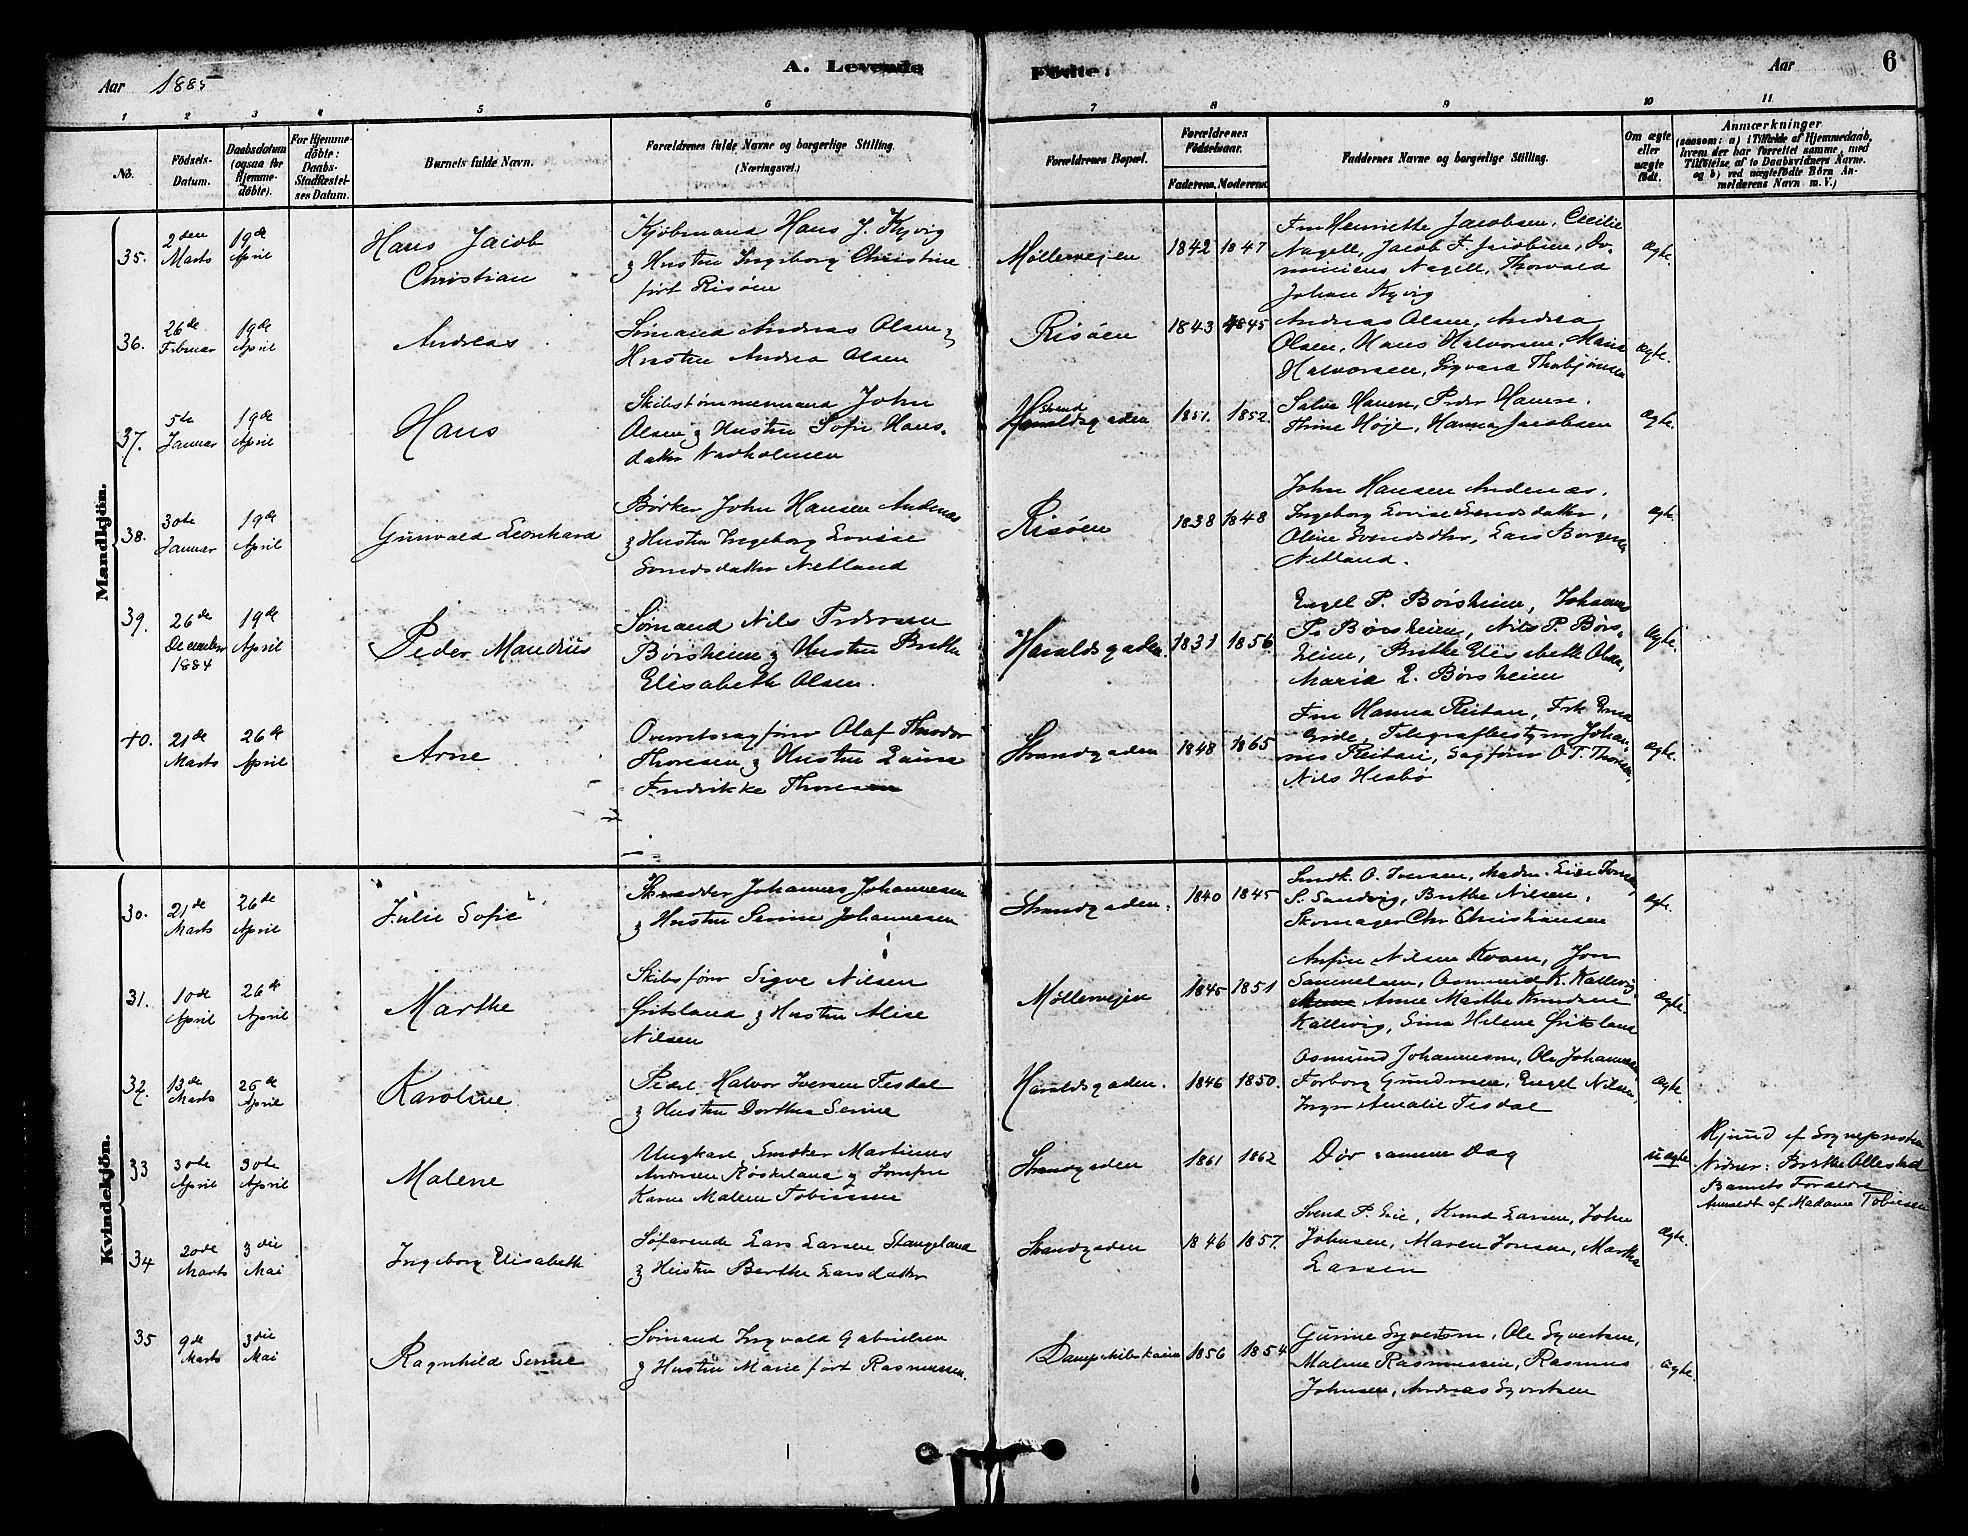 Aar 1885
A. Levende Fødte.
Aar
6
1 2 3 4 5 6 7 8 9 10 11
No.
Fødsels-Datum.
Daabsdatum (ogsaa for Hjemmedöbte).
For Hjemmedöbte: Daabs-Stadfæstelses Datum.
Barnets fulde Navn.
Forældrenes fulde Navne og borgerlige Stilling. (Næringsvei.)
Forældrenes Bopæl.
Forældrenes Fødselsaar.
Faderens. Moderens.
Faddernes Navne og borgerlige Stilling.
Om ægte eller uægte født.
Anmærkninger
(saasom: a) i Tilfælde af Hjemmedaab,
hvem der har forrettet samme, med
Tilføielse af to Daabsvidners Navne.
og b) ved uægtefødte Börn An-
melderens Navn m. V.)
Mandkjön.
35. 2den Marts 19de April
Hans Jacob
Christian
Kjøbmand Hans J. Kyvig
& Hustru Ingeborg Christine
født Risøen
Møllervejen 1842 1847
Fru Henriette Jacobsen, Cecilie
Nagell, Jacob F. Jacobsen, Do-
minicus Nagell, Thorvald
Johan Kyvig
Ægte.
36. 26de Februar 19de April
Andreas
Sømand Andreas Olsen &
Hustru Andrea Olsen
Risøen 1843 1845
Andreas Olsen, Andrea
Olsen, Hans Halvorsen, Maria
Halvorsen, Sigvard Thorbjørnsen
Ægte.
37. 5te Januar 19de April
Hans
Skibstømmermand John
Olsen & Hustru Sofie Hans-
datter Nadholmen
Strand
Haraldsgaden 1851. 1852.
Salve Hansen, Peder Hansen.
Thine Høje, Hanna Jacobsen
Ægte.
38. 30te Januar 19de April
Gunvald Leonhard
Bødker John Hansen Andenæs
& Hustru Ingeborg Lovise
Svendsdatter Netland
Risøen 1838 1848
John Hansen Andenæs,
Ingeborg Lovise Svendsdatter,
Oline Svendsdtr, Lars Borgersen
Netland.
Ægte.
39. 26de December 1884 19de April
Peder Mandrius
Sømand Nils Pedersen
Børsheim & Hustru Birthe
Elisabeth Olsen.
Haraldsgaden. 1831 1856.
Engel P. Børsheim, Johannes
P. Børsheim, Nils P. Børs-
heim, Birthe Elisabeth Olsen,
Maria L. Børsheim
Ægte.
40. 21de Marts 26de April
Arne
Overretssagfører Olaf Theodor
Thoresen & Hustru Laura
Fredrikke Thoresen
Strandgaden 1848 1865
Fru Hanna Reitan, Frk Erna
Eide, Telegrafbestyrer Johan-
nes Reitan, Sagfører O. T. Thoresen,
Nils Hesbø
Ægte.
Kvindekjön.
30. 21de Marts 26de April
Julie Sofie
Skrædder Johannes Johannesen
& Hustru Serine Johannesen
Strandgaden. 1840 1845
Smdk. O. Iversen, Madm. Lise Iversen,
S. Sandvig, Birthe Nilsen,
Skomager Chr Christiansen
Ægte.
31. 10de April 26de April
Marthe
Skibsfører Sigve Nilsen
Gritsland & Hustru Alise
Nilsen
Møllerveien 1845 1851
Anfin Nilsen Kvam, Jon
Samuelsen, Osmund K. Kallevig
Anne Marthe Knudsen
Kallevig, Sina Helene Gritsland
Ægte.
32. 13de Marts 26de April
Karoline
Pedl. Halvor Iversen Tesdal
& Hustru Dorthea Serine
Haraldsgaden. 1846 1850.
Osmund Johannesen, Ole Johannesen
Torborg Gundersen, Engel Nilsen,
Inger Amalie Tesdal
Ægte.
33 30te April 30te April
Malene
Ungkarl, Smdker Martinus
Andersen Røskeland & Jomfru
Karen Malene Tobiassen
Strandgaden 1861 1862
Dør samme Dag
uægte
Hjemd af Sognepresten
Vidner: Birthe Ollestad
Barnets Forældre
Anmeldt af Madame Tobiesen
34 20de Marts 3die Mai
Ingeborg Elisabeth
Søfarende Lars Larsen Stangeland
& Hustru Berthe Larsdatter
Strandgaden 1846 1857.
Svend P. Lie, Knud Larsen, John
Johnsen, Maren Jonsen, Martha
Larsen
Ægte.
35 9de Marts 3die Mai
Ragnhild Serine
Sømand Ingvald Gabrielsen
& Hustru Marie født Rasmussen.
Dampskibskaien 1856 1854
Gurine Syvertsen, Ole Syvertsen,
Malene Rasmussen, Rasmus
Johnsen, Andreas Syvertsen
Ægte.